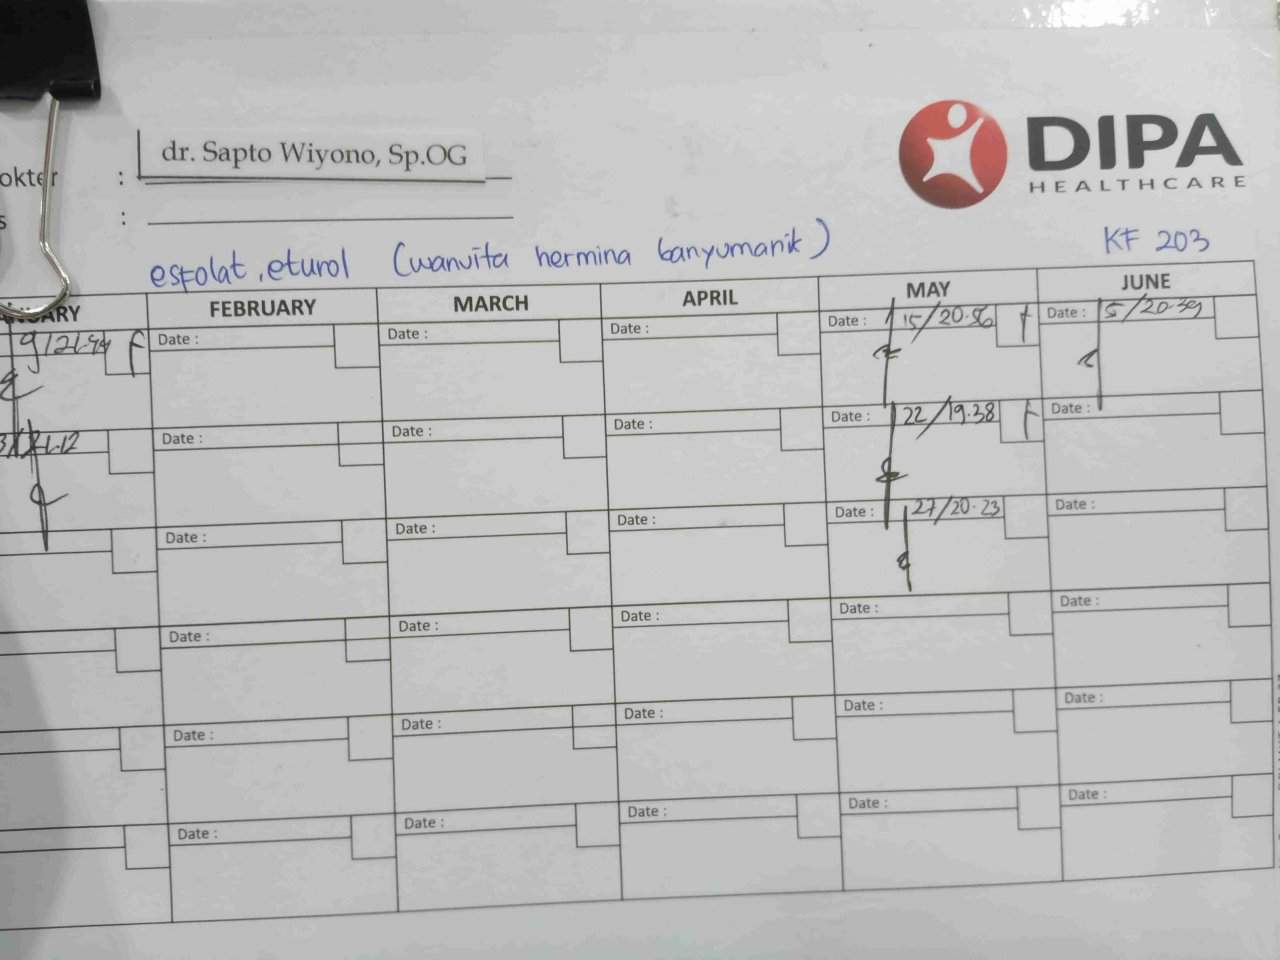 DIPA
HEALTHCARE
dr. Sapto Wiyono, Sp.OG
okter :
s :
esfolat, eturol (wanvita hermina banyumanik) KF 203
FEBRUARY MARCH APRIL MAY JUNE
Date : Date : Date : Date : 15/20.56 f Date : 5/20.39
Date : Date : Date : Date : 22/19.38 f Date :
Date : Date : Date : Date : 27/20.23 Date :
Date : Date : Date : Date : Date :
Date : Date : Date : Date : Date :
Date : Date : Date : Date : Date :